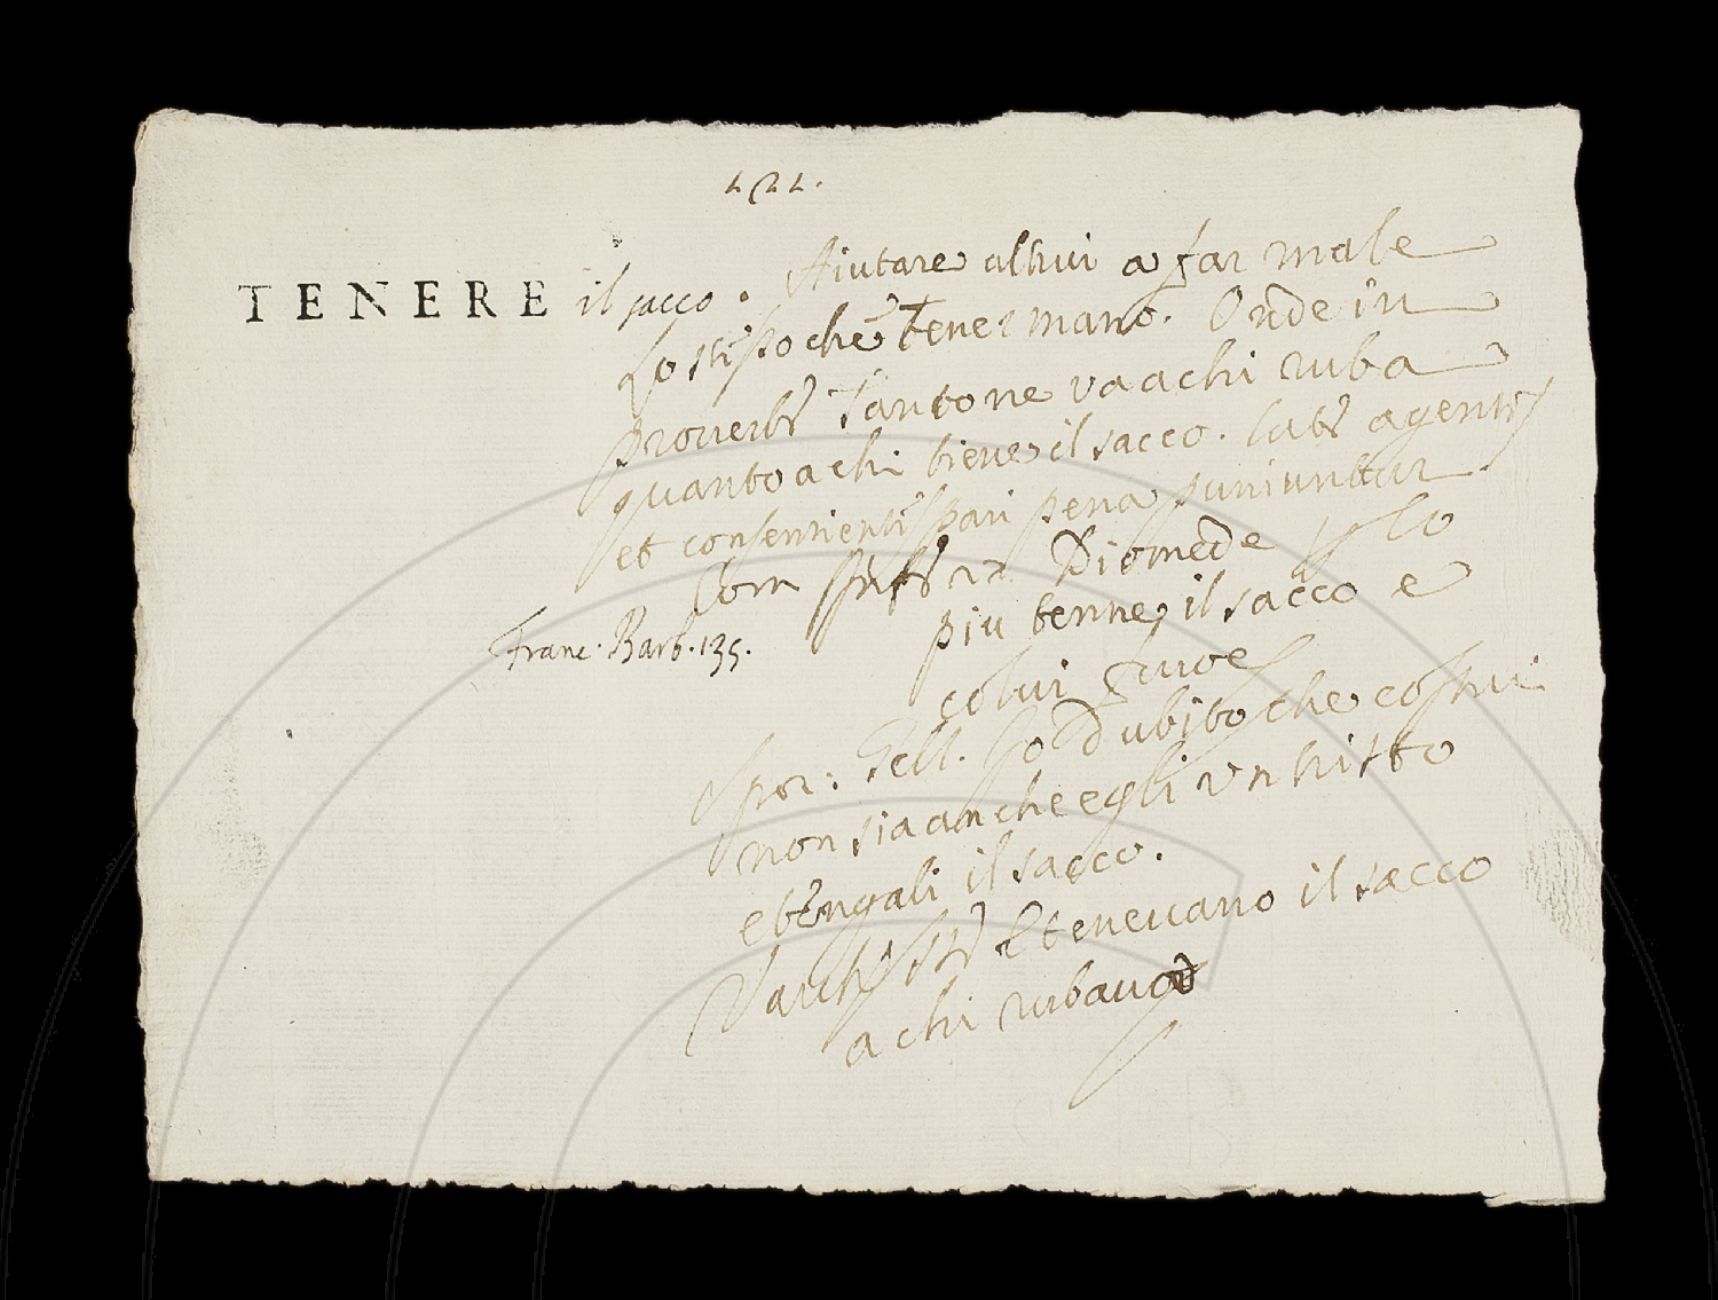 TENERE il sacco. Aiutare altrui a far male
Lo stesso che Tener mano. Onde in
proverb Tanto ne va a chi ruba
quanto a chi tiene il sacco. agentes
et consentientes pari pena puniuntur
Com Inf Diomede
piu tenne il sacco e
colui
Franc. Barb. 135.
Spor: Gell. Io dubito che costui
non sia anche egli un tristo
e tengali il sacco.
Varch St E tenevano il sacco
a chi rubava